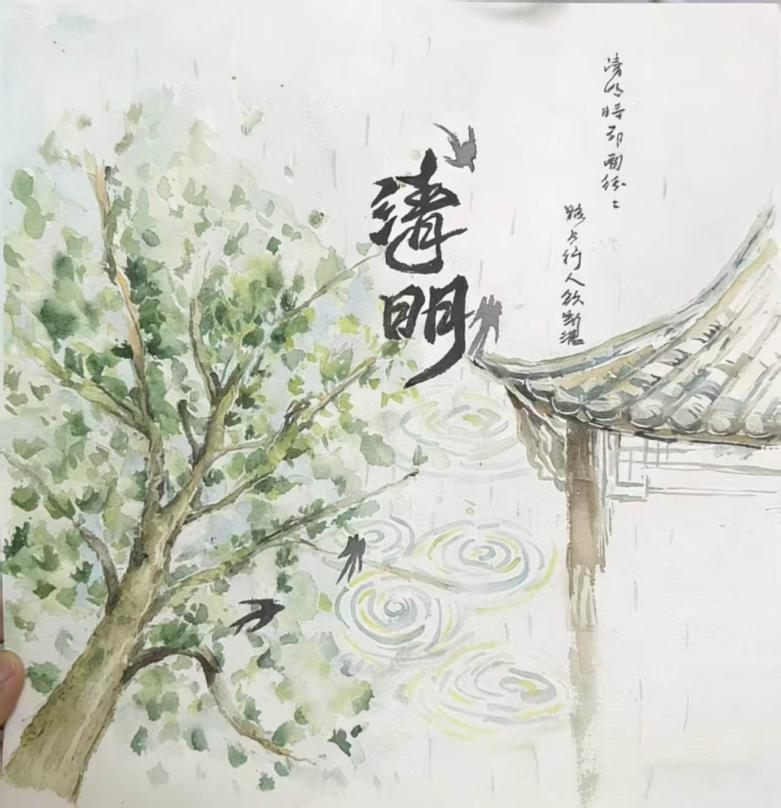 清明
清明时节雨纷〻
路上行人欲断魂